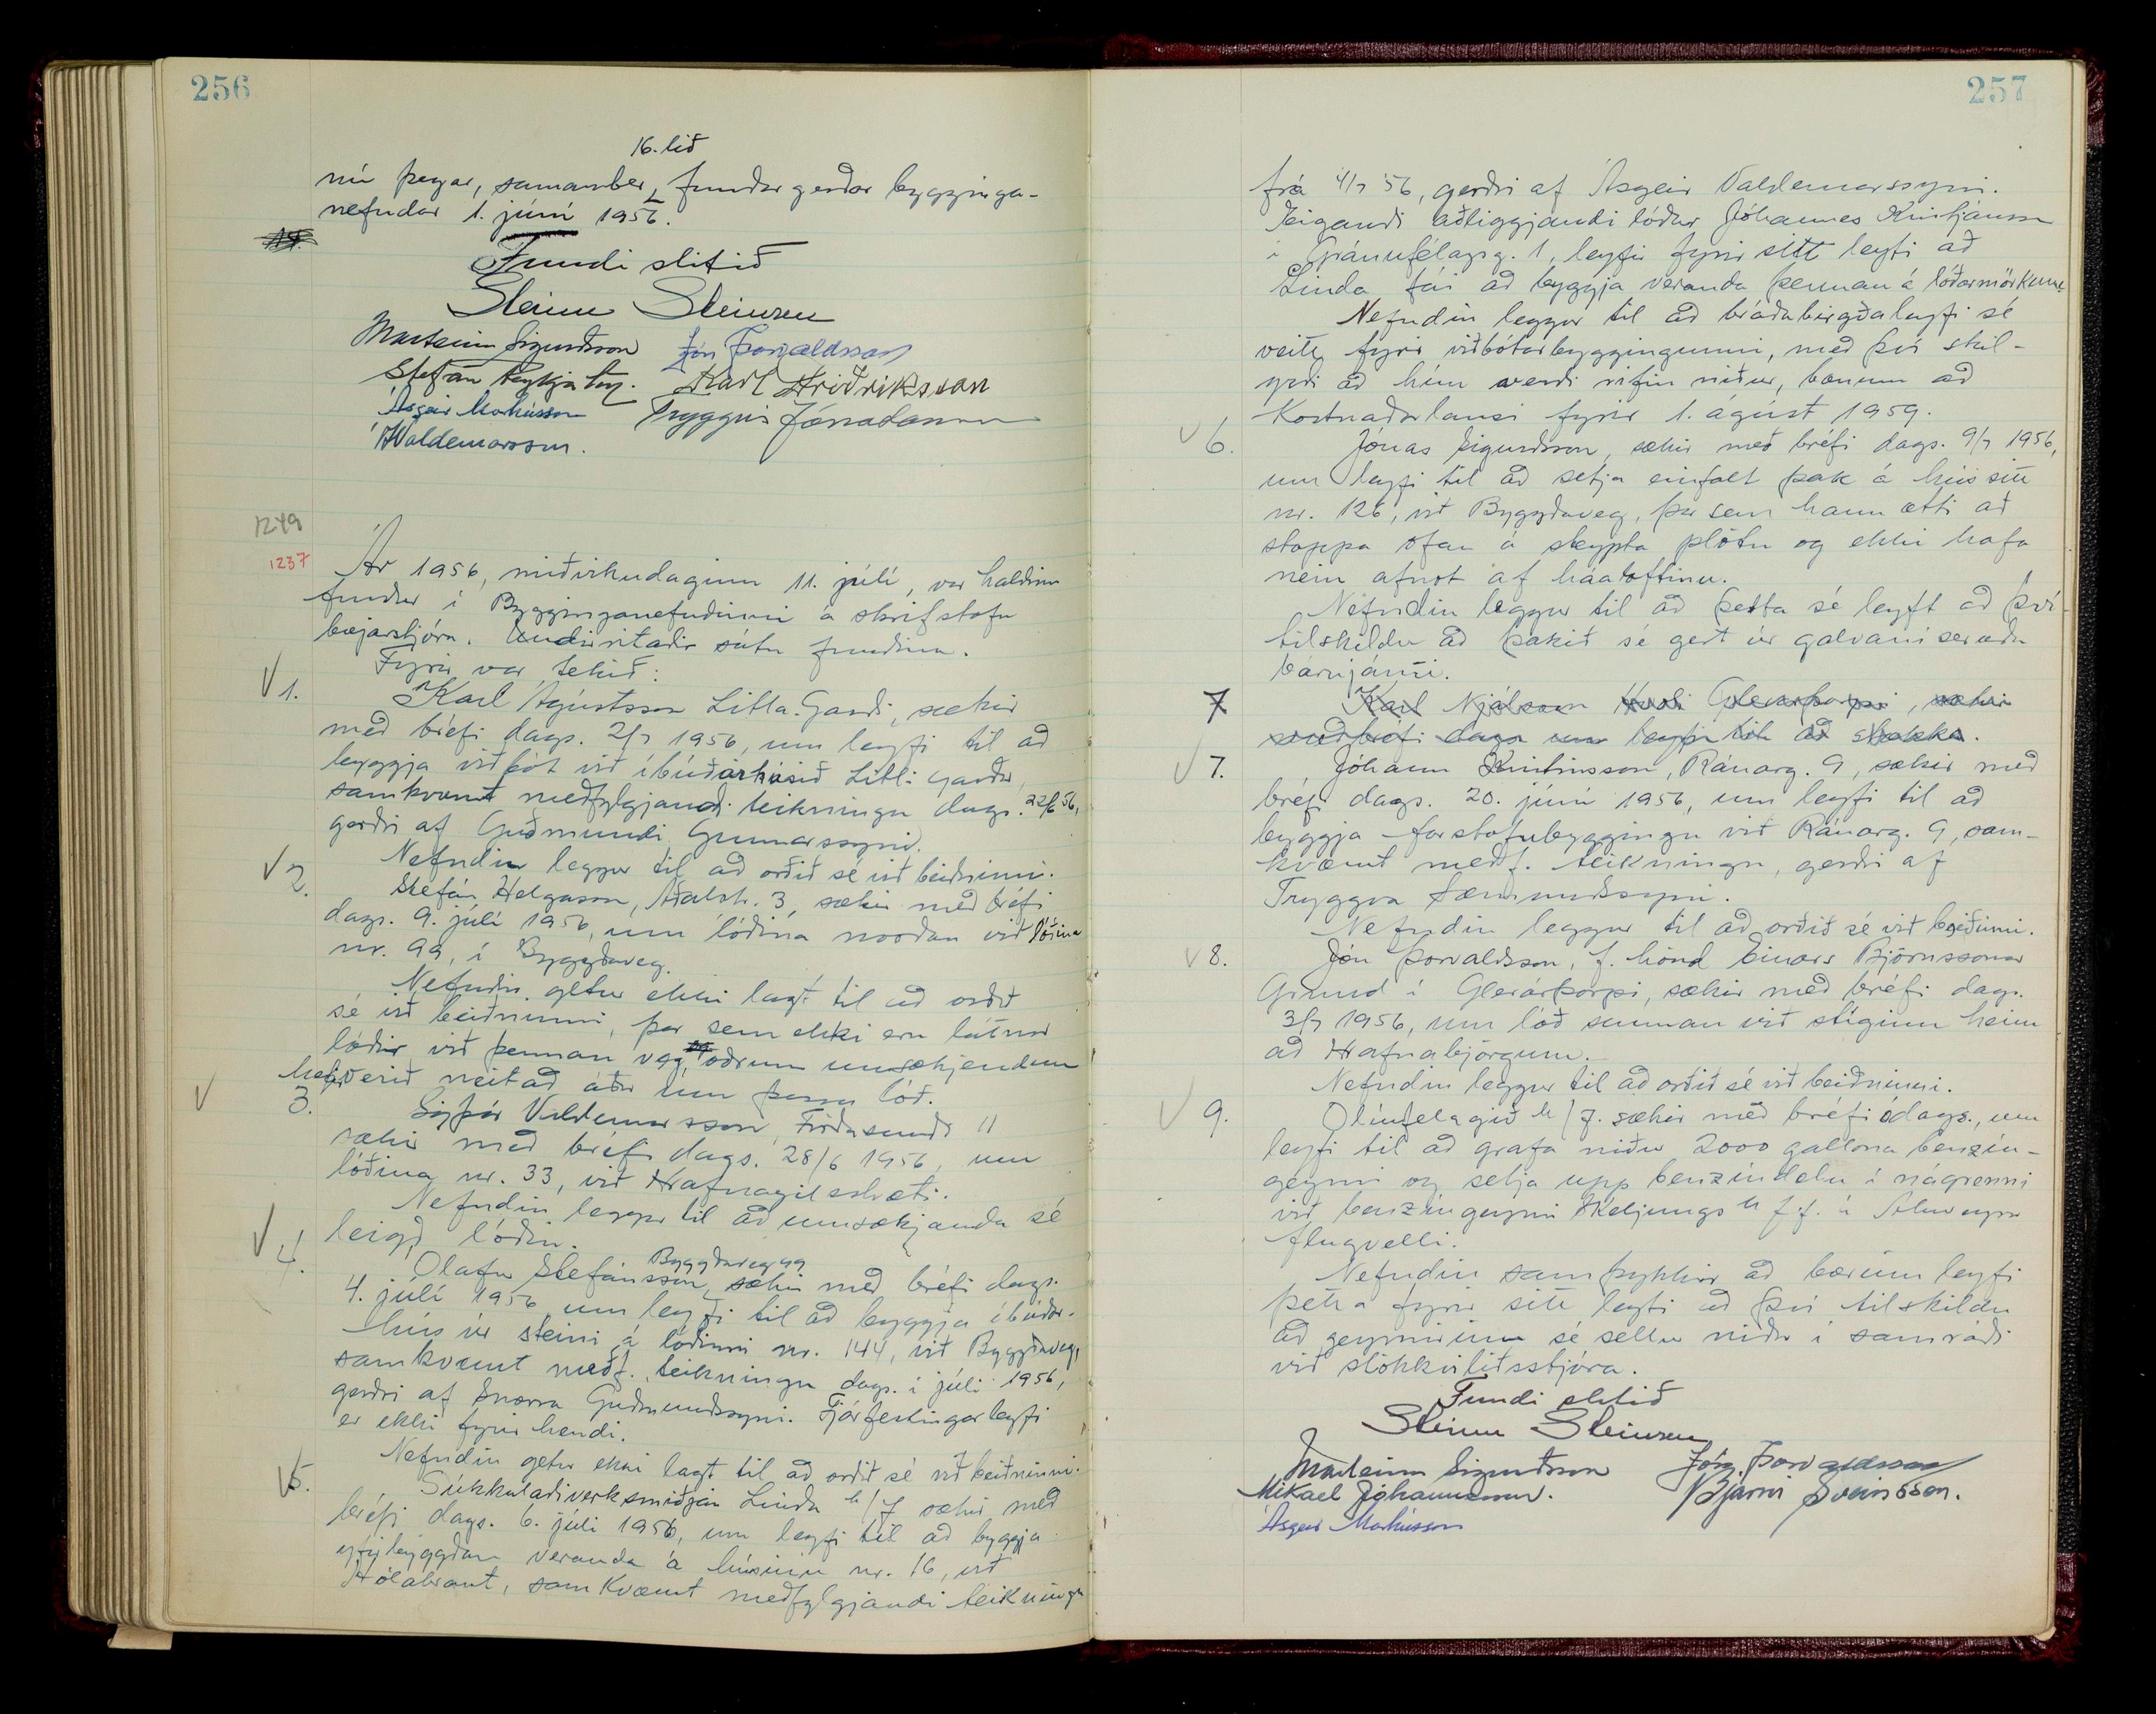 256
16. lið
nú þegar, samanber, fundargerðar bygginga-
nefndar 1. júní 1956.
Fundi slitið
Steinn Steinsen
Marteinn Sigurðsson Jón Þorvaldsson
Stefán Reykjalín. Karl Friðriksson
Ásgeir Markússon Tryggvi Jónatansson
ÁValdemarsson.
1249
1237
Ár 1956, miðvikudaginn 11. júlí, var haldinn
fundur í Bygginganefndinni á skrifstofu
bæjarstjóra. Undirritaðir sátu fundinn.
Fyrir var tekið:
1. Karl Ágústsson Litla-Garði, sækir
með bréfi dags. 2/7 1956, um leyfi til að
byggja viðbót við íbúðarhúsið Litli-Garður,
samkvæmt meðfylgjandi teikningu dags. 22/6 56,
gerðri af Guðmundi Gunnarssyni.
Nefndin leggur til að orðið sé við beiðninni.
2. Stefán Helgason, Aðalstr. 3, sækir með bréfi
dags. 9. júlí 1956, um lóðina norðan við lóðina
nr. 99, í Byggðaveg.
Nefndin getur ekki lagt til að orðið
sé við beiðninni, þar sem ekki eru látnar
lóðir við þennan veg, öðrum umsækjendum
hefir verið neitað áður um þessa lóð.
3. Sigþór Valdemarsson, Fróðasundi 11
sækir með bréfi dags. 28/6 1956, um
lóðina nr. 33, við Hrafnagilsstræti.
Nefndin leggur til að umsækjanda sé
leigð lóðin.
Byggðaveg 99
4. Ólafur Stefánsson, sækir með bréfi dags.
4. júlí 1956 um leyfi til að byggja íbúðar-
hús úr steini á lóðinni nr. 144, við Byggðaveg,
samkvæmt meðf. teikningu dags. í júlí 1956,
gerðri af Snorra Guðmundssyni. Fjárfestingarleyfi
er ekki fyrir hendi.
Nefndin getur ekki lagt til að orðið sé við beiðninni.
5. Súkkulaðiverksmiðjan Linda h/f sækir með
bréfi dags. 6. júlí 1956, um leyfi til að byggja
yfirbyggðan veranda á húsinu nr. 16, við
Hólabraut, samkvæmt meðfylgjandi teikningu
257
frá 4/7 '56, gerðri af Ásgeir Valdemarssyni.
Eigandi aðliggjandi lóðar, Jóhannes Kristjánsson
í Gránufélagsg. 1, leyfir fyrir sitt leyti að
Linda fái að byggja veranda þennan á lóðarmörkum.
Nefndin leggur til að bráðabirgðaleyfi sé
veitt fyrir viðbótarbyggingunni, með því skil-
yrði að hún verði rifin niður, bænum að
kostnaðarlausu fyrir 1. ágúst 1959.
6. Jónas Sigurðsson, sækir með bréfi dags. 9/7 1956,
um leyfi til að setja einfalt þak á hús sitt
nr. 126, við Byggðaveg, þar sem hann ætti að
stoppa ofan á steypta plötu og ekki hafa
nein afnot af háaloftinu.
Nefndin leggur til að þetta sé leyft að því-
tilskildu að þakið sé gert úr galvaniseruðu
bárujárni.
7 Karl Njálsson Glerárþorpi, sækir
með bréfi dags um leyfi til að
7. Jóhann Kristinsson, Ránarg. 9, sækir með
bréfi dags. 20. júní 1956, um leyfi til að
byggja forstofubyggingu við Ránarg. 9, sam-
kvæmt meðf. teikningu, gerðri af
Tryggva Sæmundssyni.
Nefndin leggur til að orðið sé við beiðninni.
8. Jón Þorvaldsson, f. hönd Einars Björnssonar
Grund í Glerárþorpi, sækir með bréfi dags.
3/7 1956, um lóð sunnan við stíginn heim
að Hrafnabjörgum.
Nefndin leggur til að orðið sé við beiðninni.
9. Olíufélagið h/f. sækir með bréfi ódags., um
leyfi til að grafa niður 2000 gallona benzín-
geymi og setja upp benzíndælu í nágrenni
við benzíngeymi Skeljungs h/f. á Akureyrar
flugvelli.
Nefndin samþykkir að bærinn leyfi
þetta fyrir sitt leyti að því tilskildu
að geymirinn sé settur niður í samráði
við slökkviliðsstjóra.
Fundi slitið
Steinn Steinsen
Marteinn Sigurðsson Jón Þorvaldsson
Mikael Jóhannesson. Bjarni Sveinsson.
Ásgeir Markússon